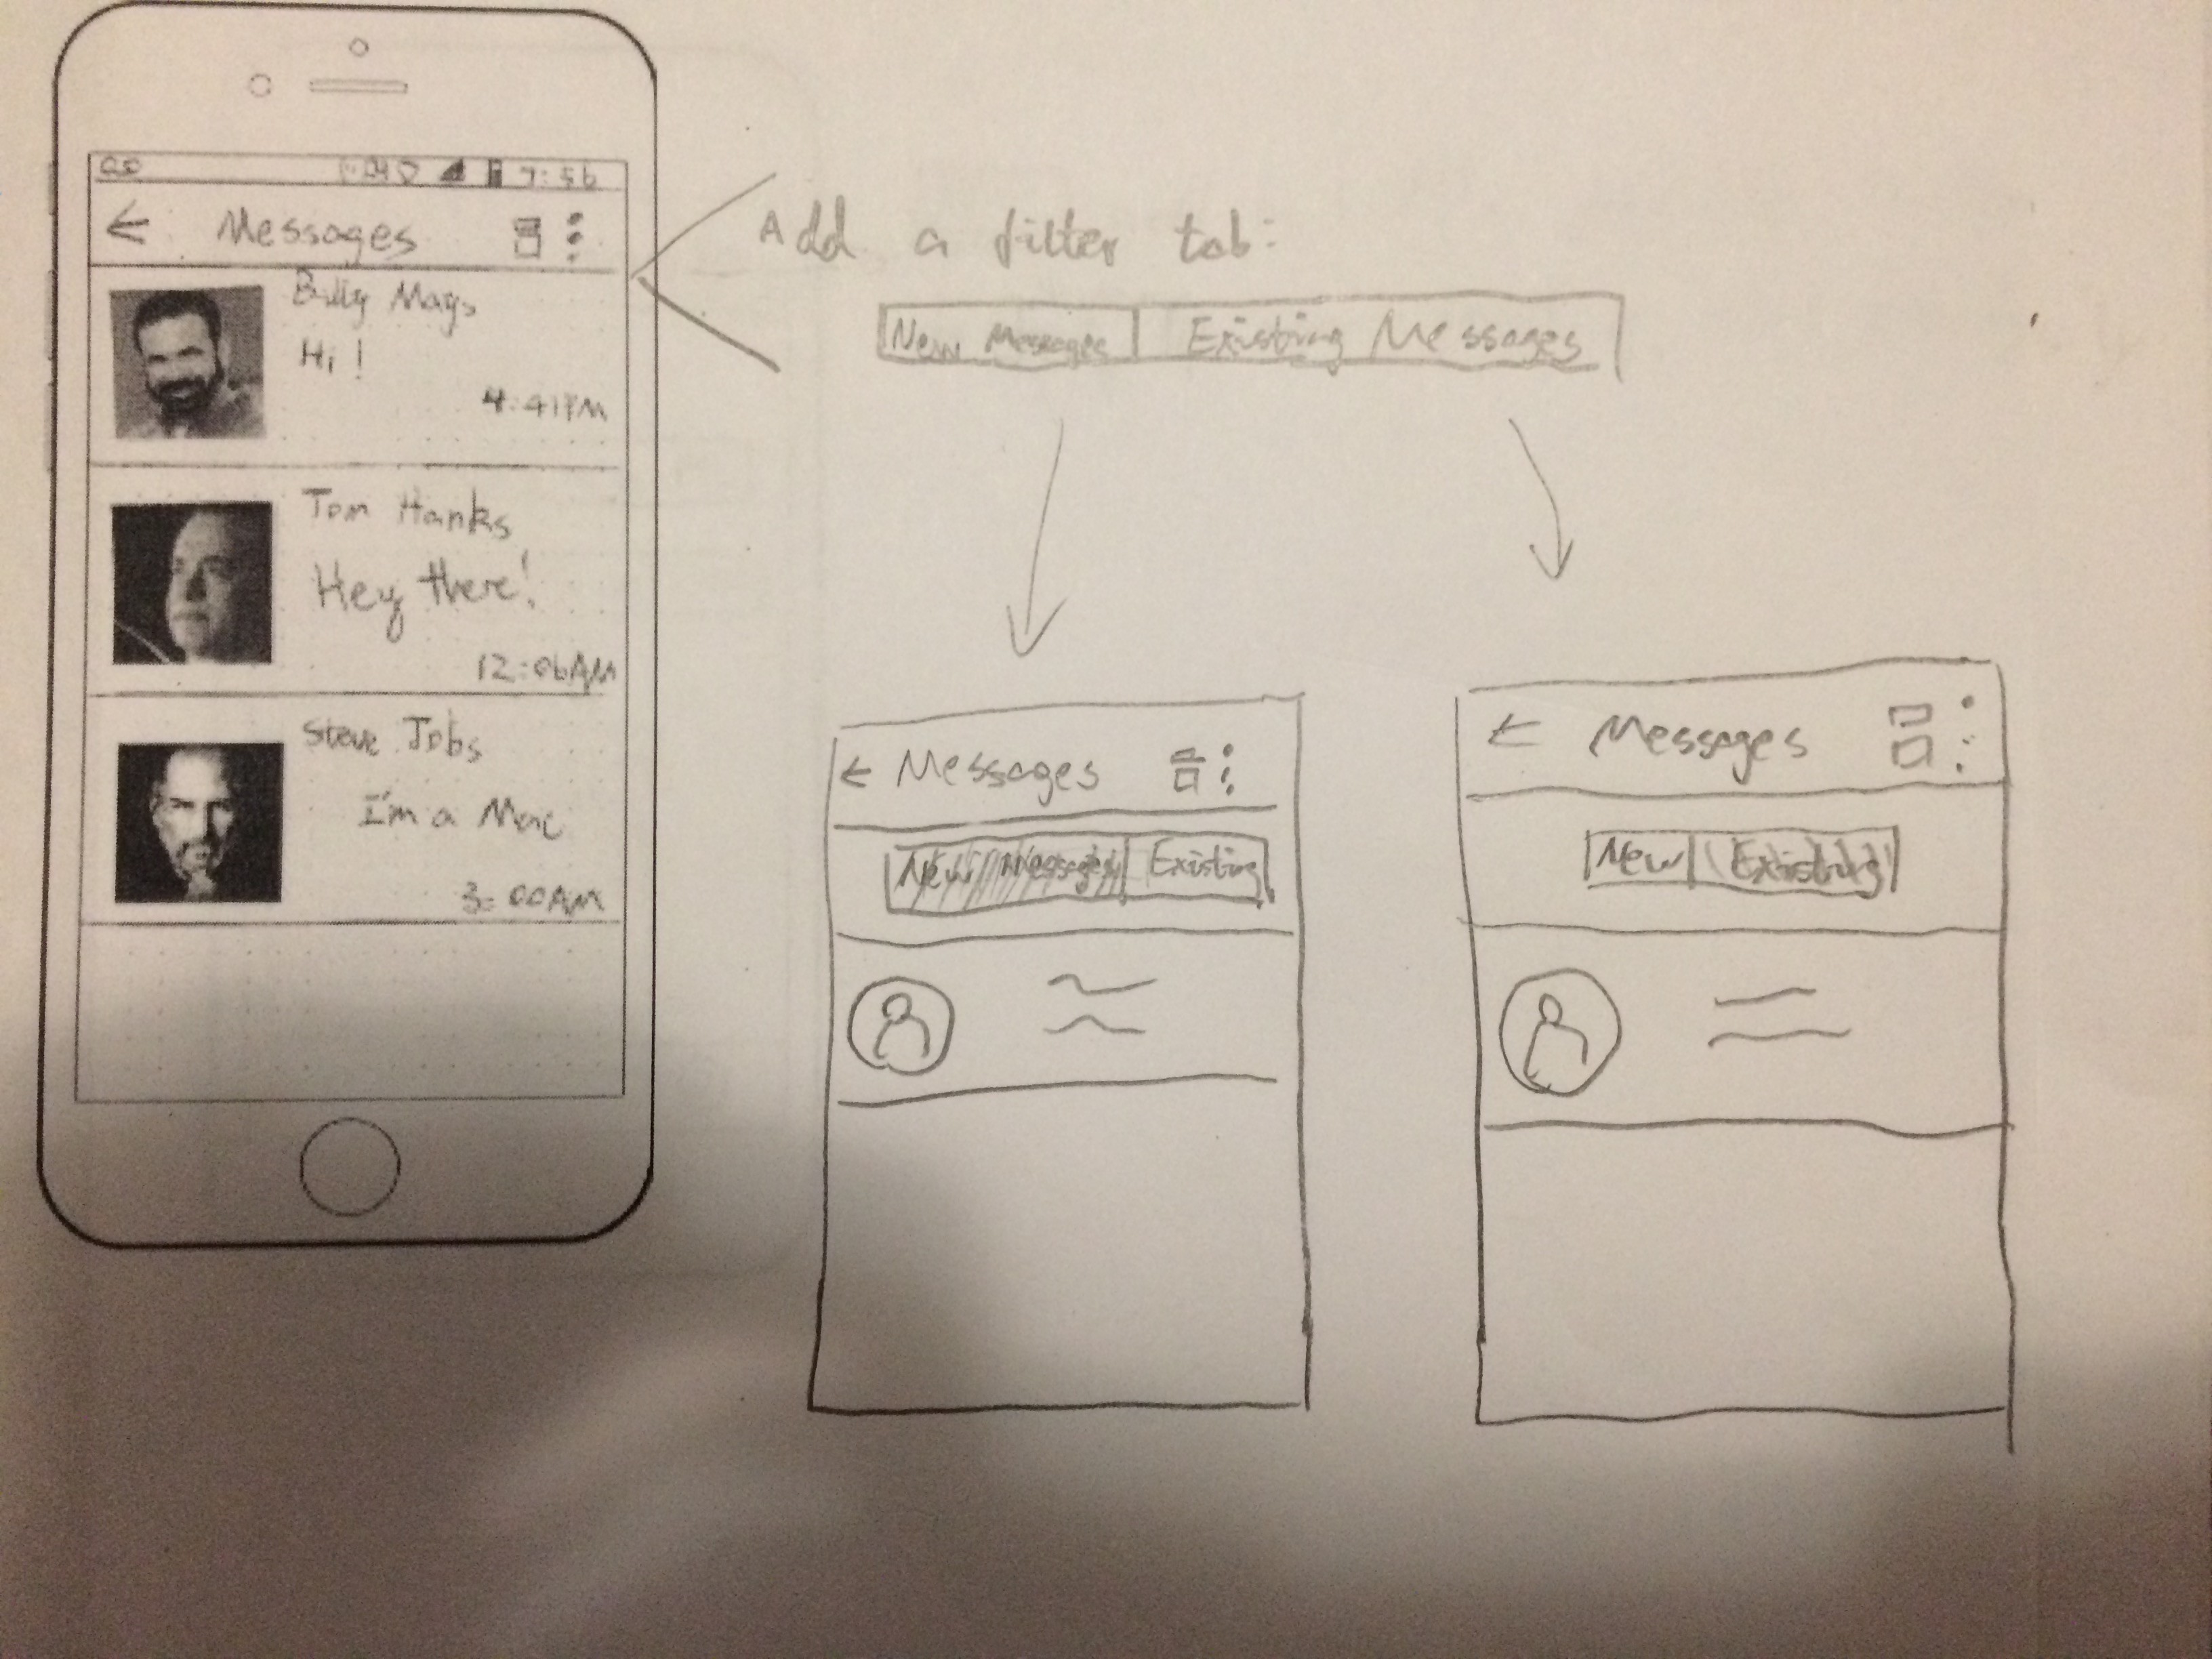 7:56
Messages
Billy Mays
Hi !
4:41PM
Tom Hanks
Hey there!
12:06AM
Steve Jobs
I'm a Mac
3:00AM
Add a filter tab:
New Messages Existing Messages
Messages
New Messages Existing
Messages
New Existing